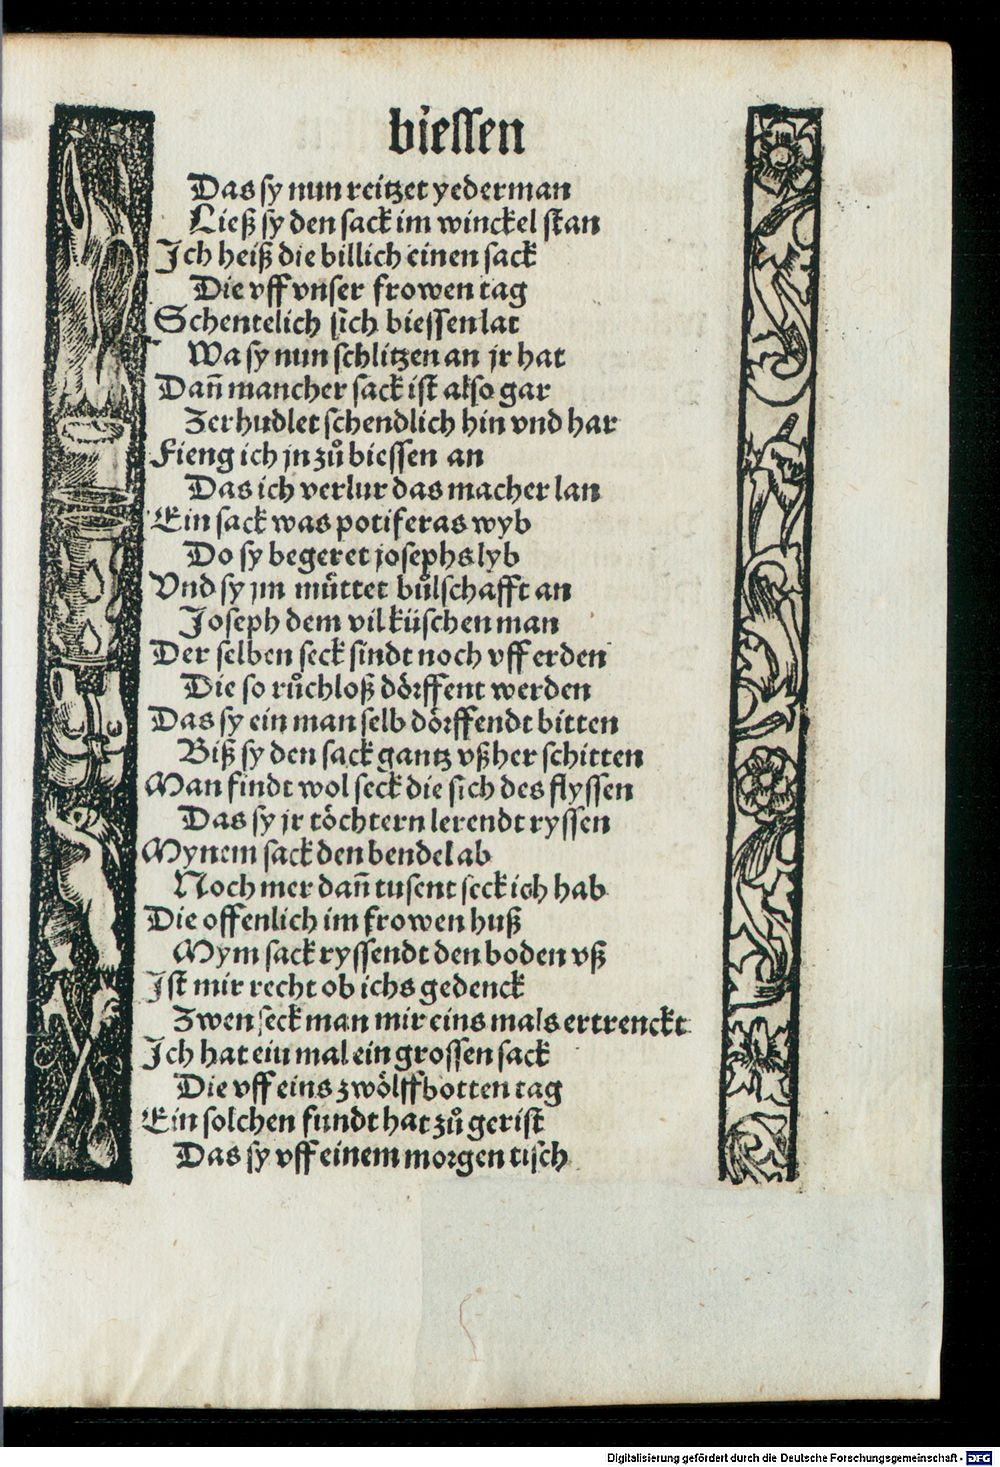 biessen
Das sy nun reitzet yederman
Ließ sy den sack im winckel stan
Ich heiß die billich einen sack
Die vff vnser frowen tag
Schentelich sich biessen lat
Wa sy nun schlitzen an jr hat
Dañ mancher sack ist also gar
Zerhudlet schendlich hin vnd har
Fieng ich jn zů biessen an
Das ich verlur das macher lan
Ein sack was potiferas wyb
Do sy begeret josephs lyb
Vnd sy jm můttet bůlschafft an
Joseph dem vil küschen man
Der selben seck sindt noch vff erden
Die so růchloß dörffent werden
Das sy ein man selb dörffendt bitten
Biß sy den sack gantz vßher schitten
Man findt wol seck die sich des flyssen
Das sy jr töchtern lerendt ryssen
Mynem sack den bendel ab
Noch mer dañ tusent seck ich hab
Die offenlich im frowen huß
Mym sack ryssendt den boden vß
Ist mir recht ob ichs gedenck
Zwen seck man mir eins mals ertrenckt
Ich hat ein mal ein grossen sack
Die vff eins zwölffbotten tag
Ein solchen fundt hat zů gerist
Das sy vff einem morgen tisch
Digitalisierung gefördert durch die Deutsche Forschungsgemeinschaft - DFG